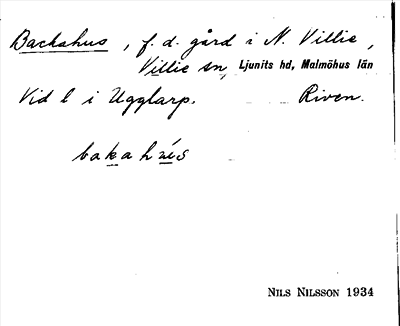 Backahus, f. d. gård i N. Villie,
Villie sn, Ljunits hd, Malmöhus län
Vid l i Ugglarp. Riven.
bakahús
NILS NILSSON 1934